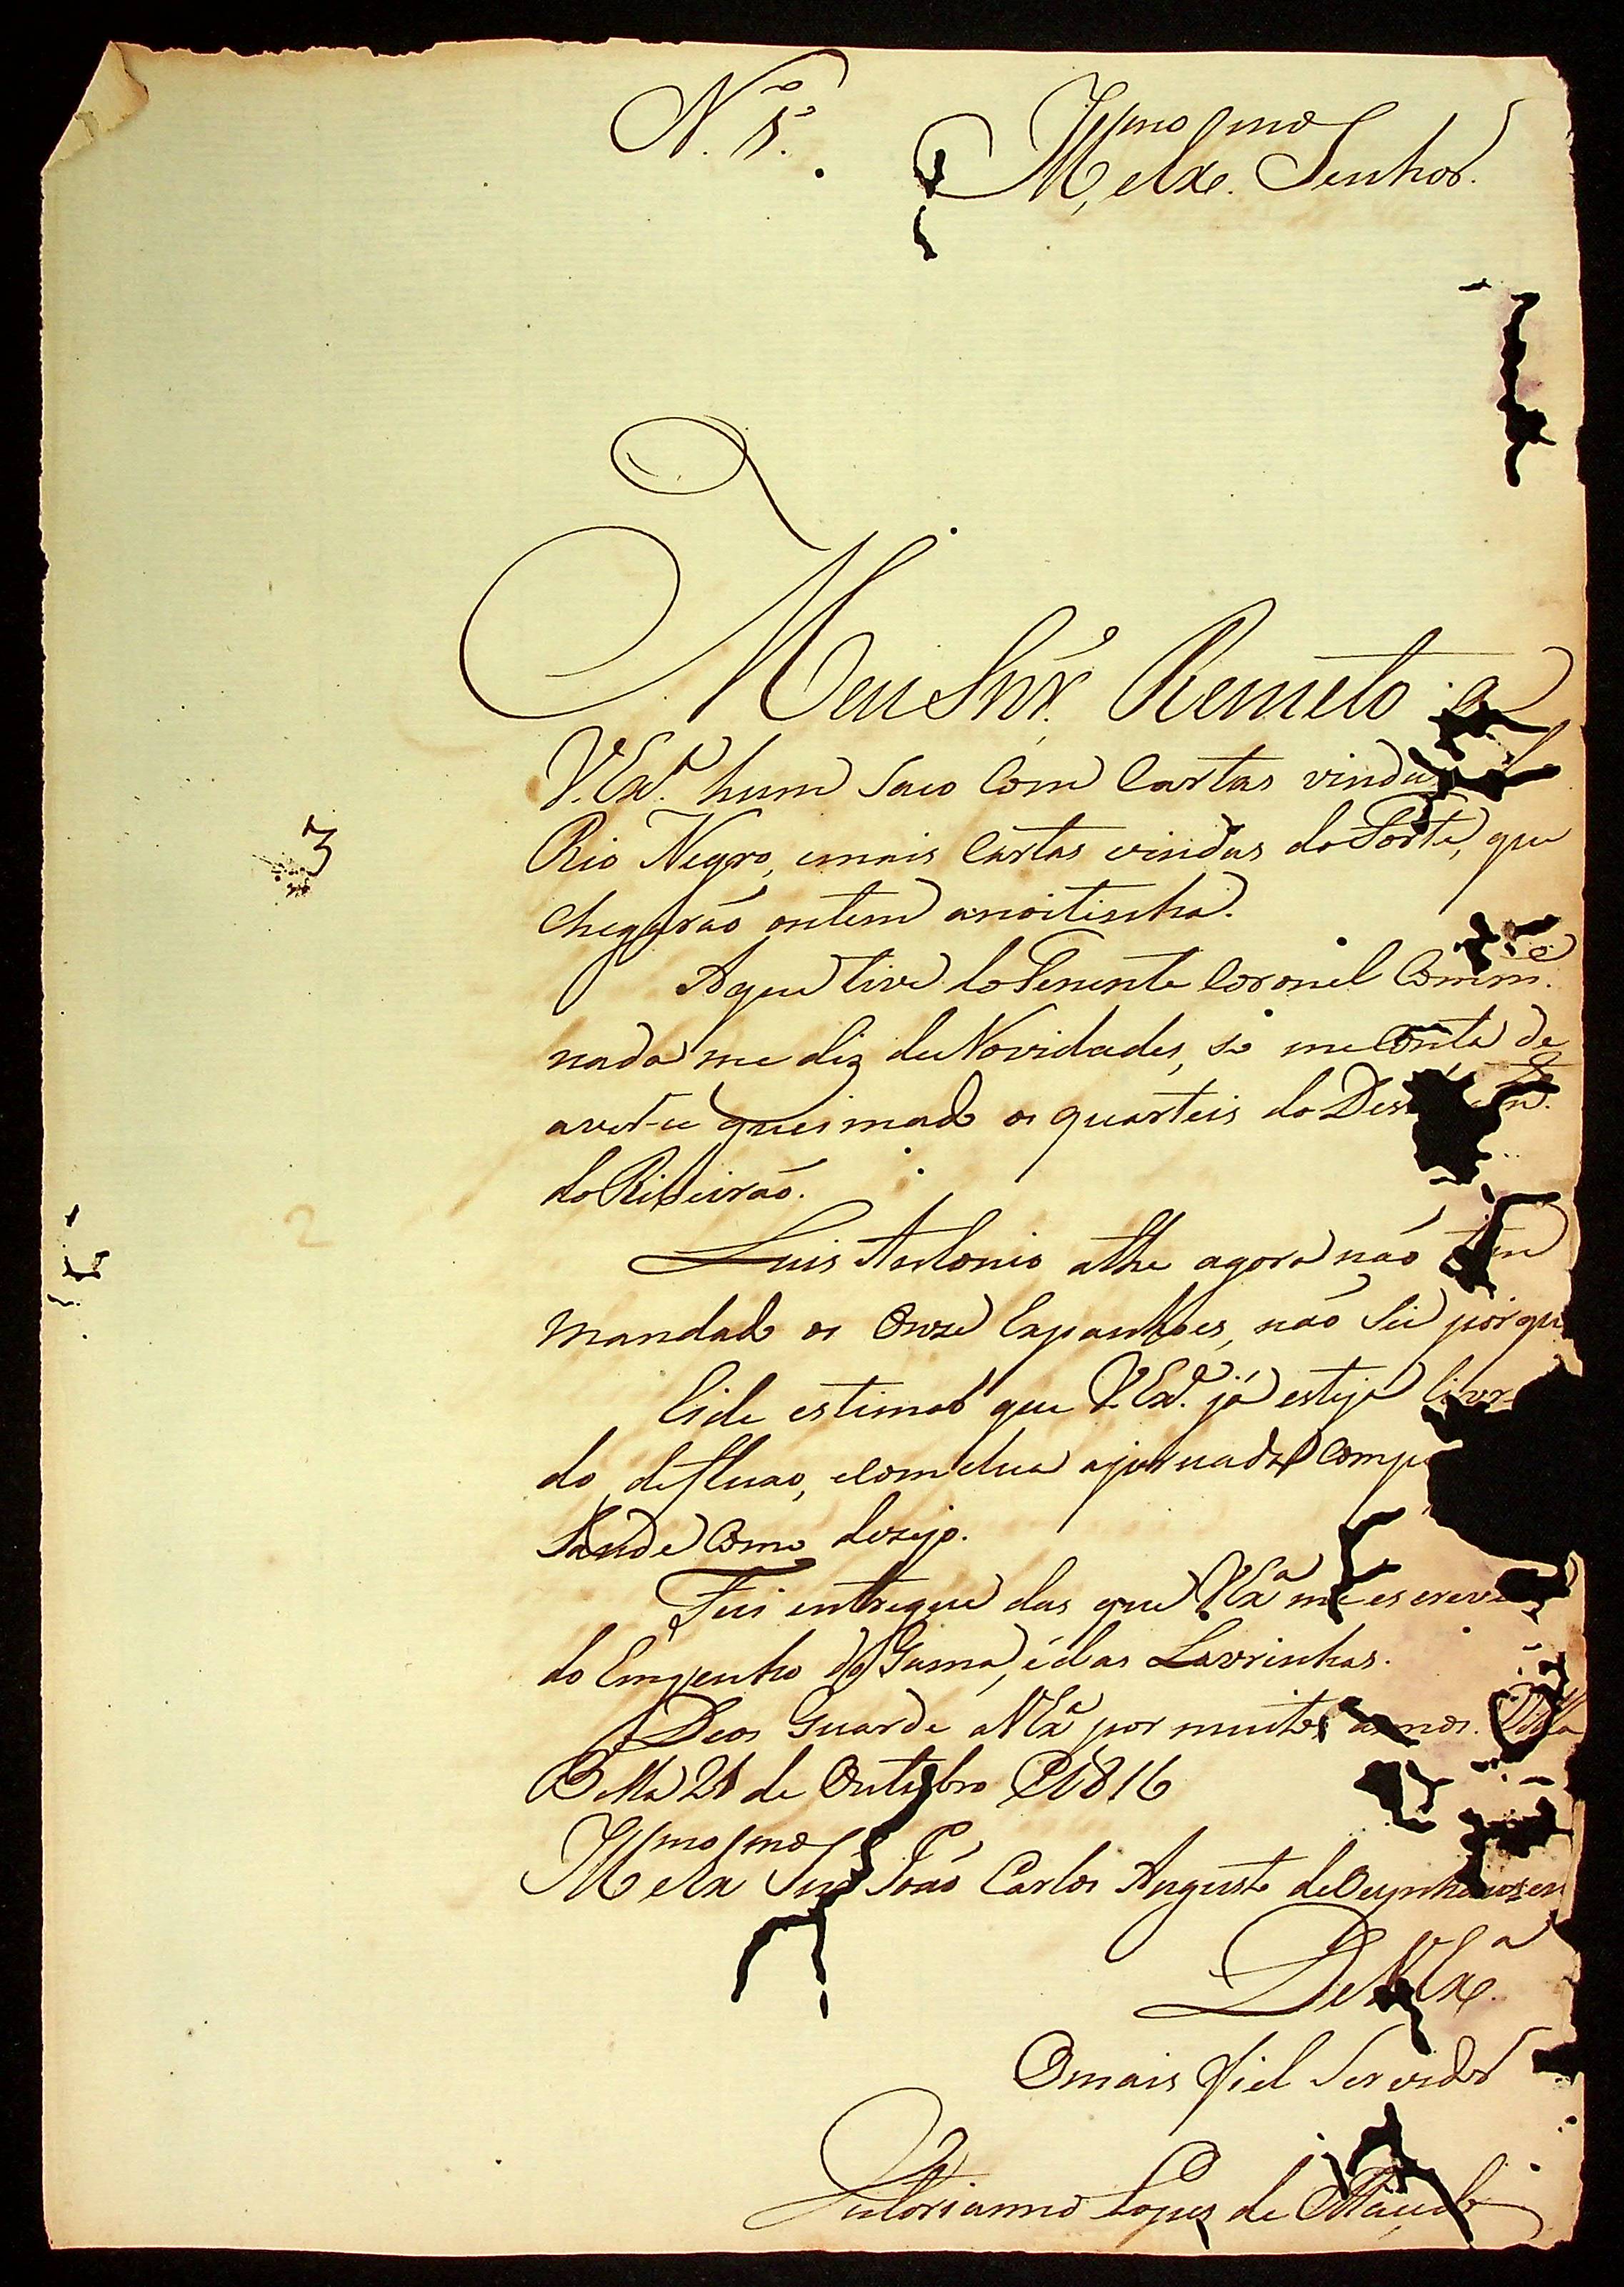 N.º 5.º
Ill.mo e Ex.mo Senhor.
Meu Snr.' Remeto a
V. Ex.ª hum Saco Com Cartas vindas
Rio Negro, emais Cartas vindas do Forte, que
Chegarão ontem anoitinha.
Aque tive do Tenente Coronel Comm.e
nada me diz de Novidades, so me Conta de
averse queimado os quarteis do Des
do Ribeirão.
Luis Antonio athe agora não tem
mandado os Onze Espanhoes, não Sei porque
Eide estimar que V. Ex.ª já esteja livre
do defluxo, ecom
Saude Como dezejo.
Fui entregue das que V Ex.ª me escreve
do Emgenho do Gama, é das Lavrinhas.
Deos Guarde a V Ex.ª por muitos annos. Villa
Bella 21 de Outubro 1816
Ill.mo e Ex.mo Snr João Carlos Augusto de Oeynhausen
De V Ex.ª
Omais Fiel Servidor
Victorianno Lopes de Macedo
3
2